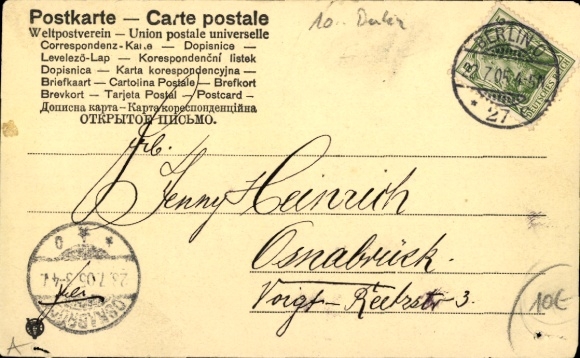 Postkarte — Carte postale
Weltpostverein — Union postale universelle
Correspondenz-Karte — Dopisnice —
Levelező-Lap — Korespondenční listek
Dopisnica — Karta korespondencyjna —
Briefkaart — Cartolina Postale — Brefkort
Brevkort — Tarjeta Postal — Postcard —
Дописна карта — Карта кореспонденційна
ОТКРЫТОЕ ПИСЬМО.
BERLIN
7.05.4-5
* 27
Frl.
Jenny Heinrich
Osnabrück.
3.
OSNABRÜCK
7.05
10€